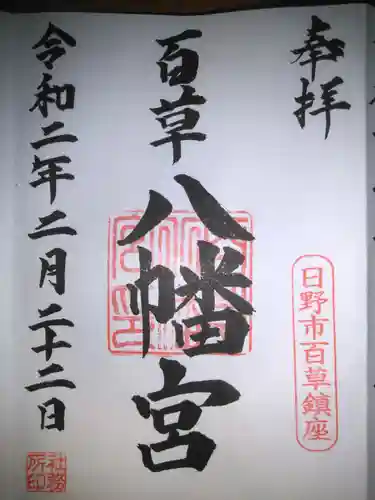 奉拝
日野市百草鎮座
百草
八幡宮
令和二年二月二十二日
社務
所印